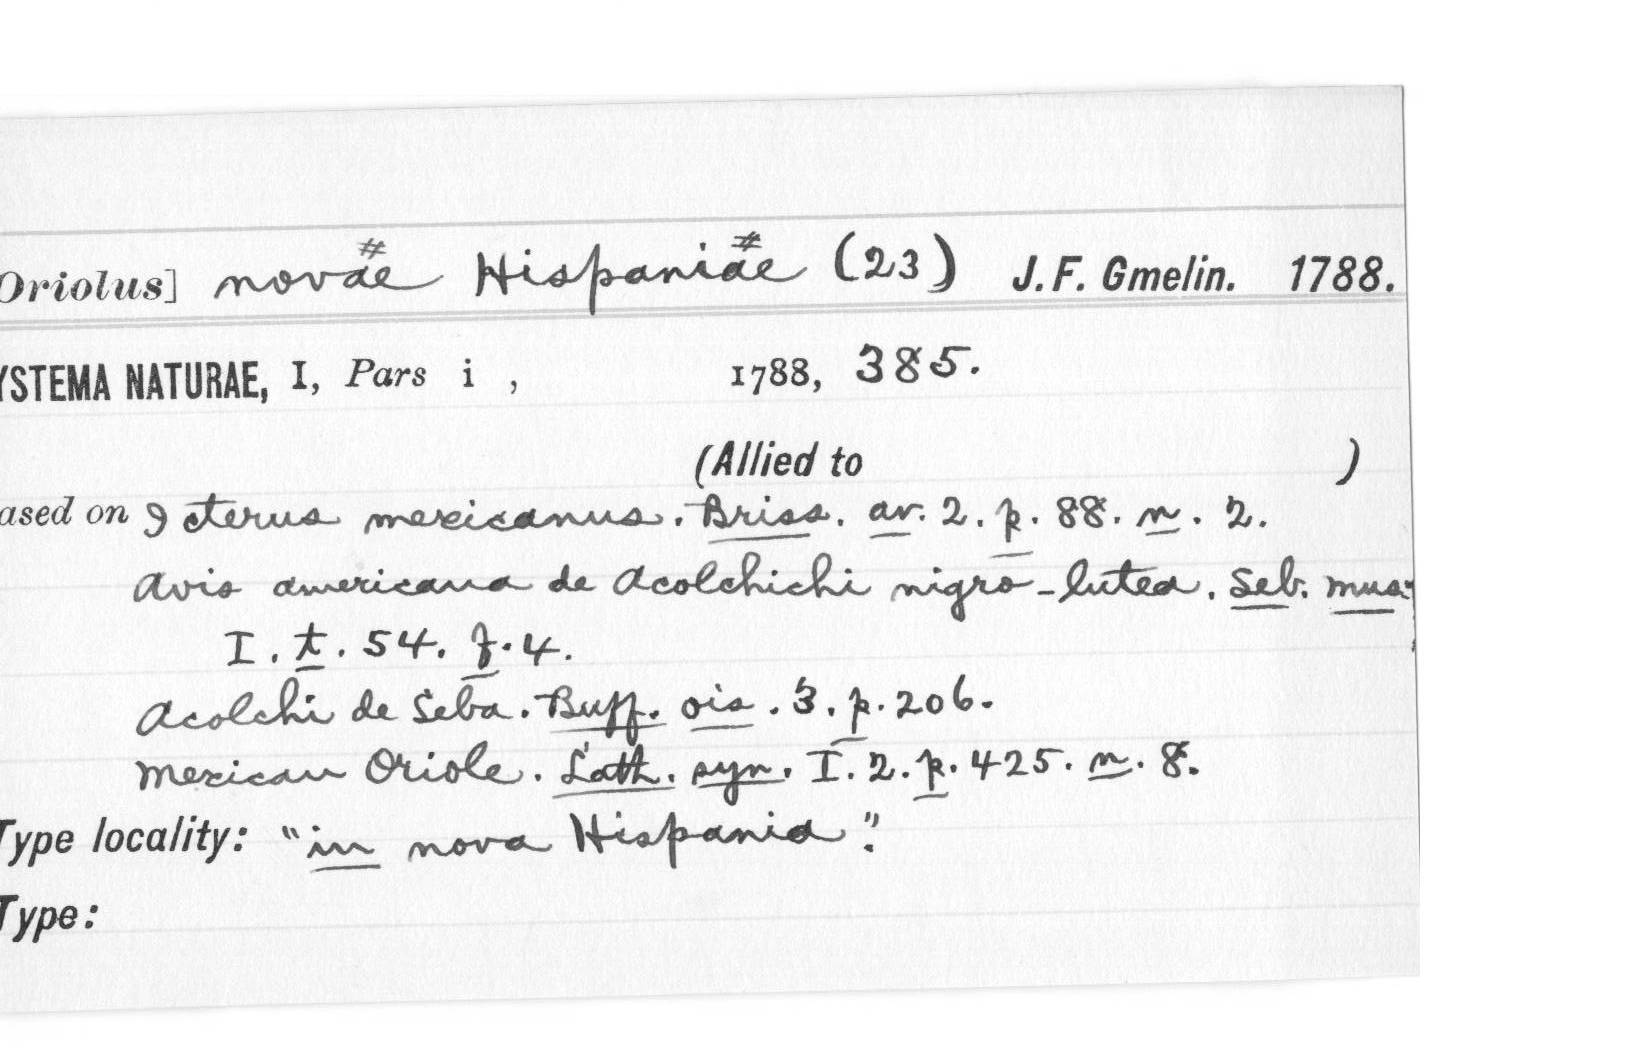 Oriolus] novae# Hispaniae# (23) J. F. Gmelin. 1788.
YSTEMA NATURAE, I, Pars i , 1788, 385.
(Allied to )
ased on Icterus mexicanus. Briss. av. 2. p. 88. n. 2.
Avis americana de Acolchichi nigro-lutea. Seb. mus.
I. t. 54. f. 4.
Acolchi de Seba. Buff. ois. 3. p. 206.
Mexican Oriole. Lath. syn. I. 2. p. 425. n. 8.
Type locality: "in nova Hispania".
Type: